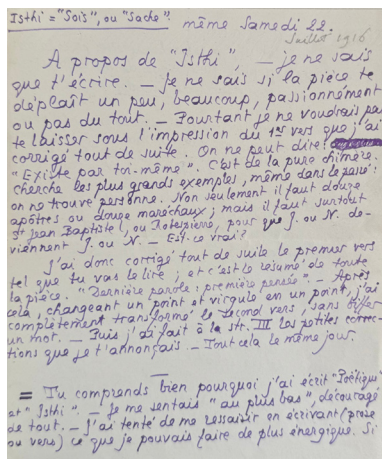 Isthi = "Sois", ou "Sache".
même Samedi 22.
Juillet 1916
A propos de "Isthi", — je ne sais
que t'écrire. — Je ne sais si la pièce te
déplaît un peu, beaucoup, passionnément
ou pas du tout. — Pourtant je ne voudrais pas
te laisser sous l'impression du 1er vers que j'ai
corrigé tout de suite. On ne peut dire:
"Existe par toi-même". C'est de la pure chimère.
Cherche les plus grands exemples, même dans le passé:
on ne trouve personne. Non seulement il faut douze
apôtres ou douze maréchaux; mais il faut surtout
St Jean Baptiste, ou Robespierre, pour que J. ou N. de-
viennent J. ou N. — Est-ce vrai?
J'ai donc corrigé tout de suite le premier vers
tel que tu vas le lire; et c'est le résumé de toute
la pièce. "Dernière parole: première pensée". — Après
cela, changeant un point et virgule en un point, j'ai
complètement transformé le second vers, sans biffer
un mot. — Puis j'ai fait à la str. III les petites correc-
tions que je t'annonçais. — Tout cela le même jour.
= Tu comprends bien pourquoi j'ai écrit "Poétique"
et "Isthi". — Je me sentais "au plus bas", découragé
de tout. — J'ai tenté de me ressaisir en écrivant (prose
ou vers) ce que je pouvais faire de plus énergique. Si